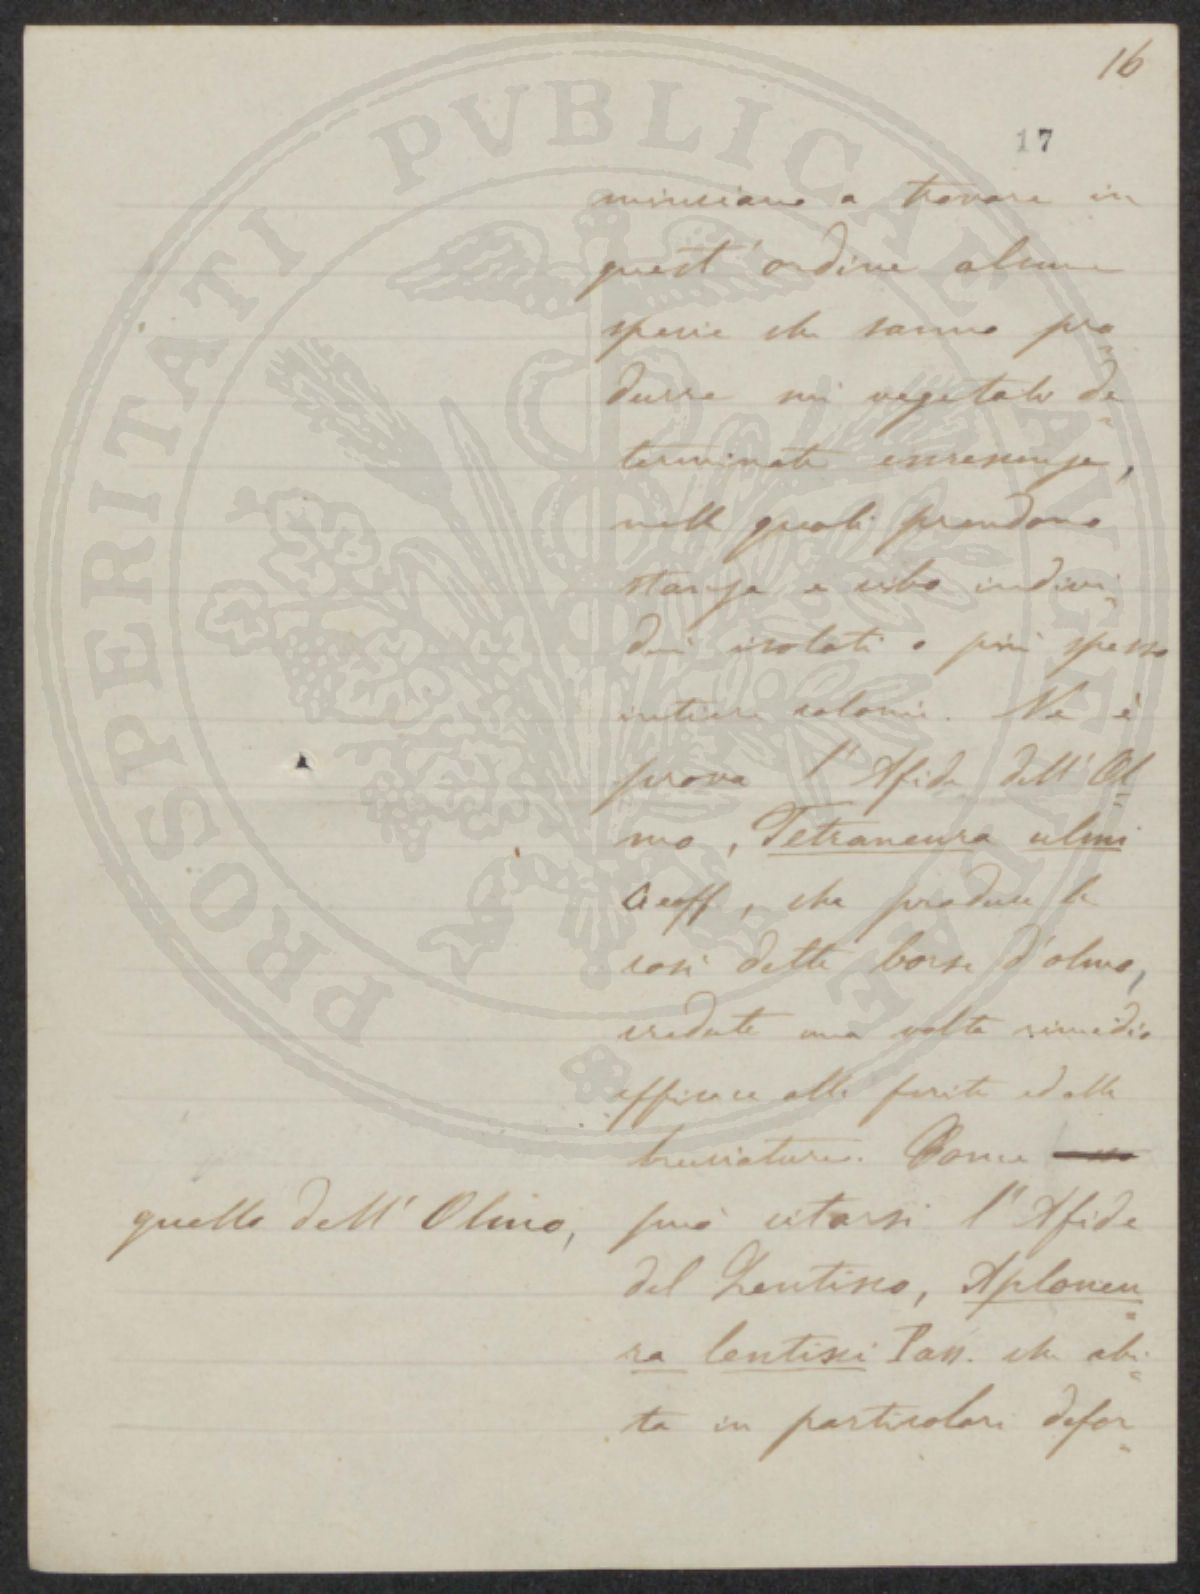 16
17
minciano a trovare in
quest' ordine alcune
specie che sanno pro
durre sui vegetali de
terminate escrescenze,
nelle quali prendono
stanza e cibo indivi
dui isolati o più spesso
intiere colonie. Ne è
prova l'Afide dell' Ol
mo, Tetraneura ulmi
Geoff, che produce le
così dette borse d'olmo,
credute una volta rimedio
efficace alle ferite ed alle
bruciature. Come
quello dell' Olmo, può citarsi l'Afide
del Lentisco, Aploneu
ra lentisci Pass. che abi
ta in particolari defor
PROSPERITATI PVBLICAE AVGENDAE